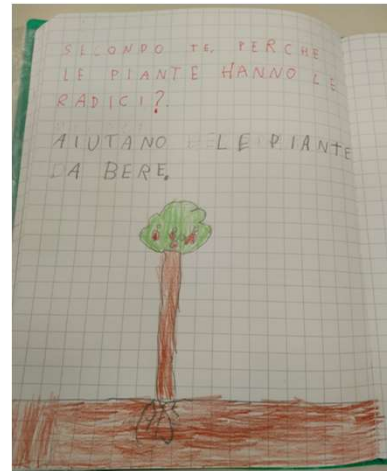 SECONDO TE, PERCHE
LE PIANTE HANNO LE
RADICI?
AIUTANO LE PIANTE
A BERE.